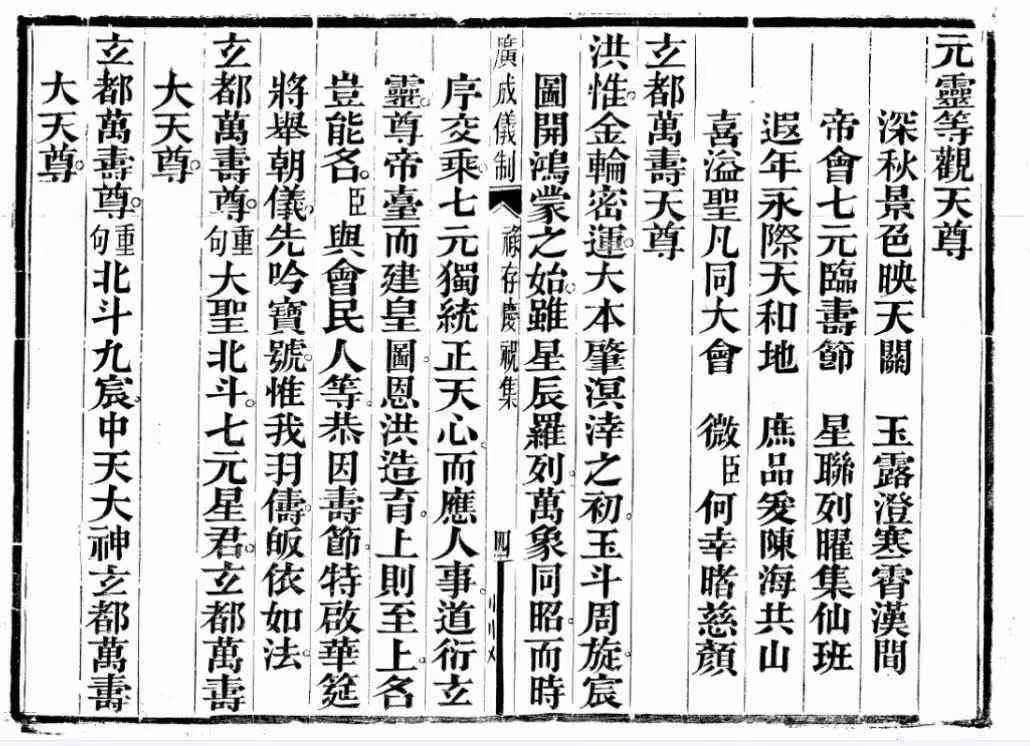 元靈等觀天尊
深秋景色映天關　玉露澄寒霄漢間
帝會七元臨壽節　星聯列曜集仙班
遐年永際天和地　庶品爰陳海共山
喜溢聖凡同大會　微臣何幸睹慈顏
玄都萬壽天尊
洪惟。金輪密運。大本肇溟涬之初。玉斗周旋。宸
圖開鴻蒙之始。雖星辰羅列。萬象同昭。而時
廣成儀制　祿存慶祝集　四
序交乘。七元獨統。正天心。而應人事。道衍玄
靈。尊帝臺而建皇圖。恩洪造育。上則至上。名
豈能名。臣與會民人等。恭因壽節。特啟華筵
將舉朝儀。先吟寶號。惟我羽儔。皈依如法。
玄都萬壽尊。重句大聖北斗。七元星君。玄都萬壽
大天尊。
玄都萬壽尊。重句北斗九宸。中天大神。玄都萬壽
大天尊。